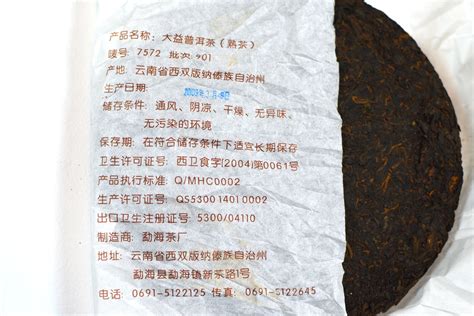 产品名称: 大益普洱茶(熟茶)
唛号: 7572 批次: 901
产地: 云南省西双版纳傣族自治州
生产日期:
储存条件: 通风、阴凉、干燥、无异味、
无污染的环境
保存期: 在符合储存条件下适宜长期保存
卫生许可证号: 西卫食字(2004)第0061号
产品执行标准: Q/MHC0002
生产许可证号: QS5300 1401 0002
出口卫生注册证号: 5300/04110
制造商: 勐海茶厂
地址: 云南省西双版纳傣族自治州
勐海县勐海镇新茶路1号
电话: 0691-5122125 传真: 0691-5122645